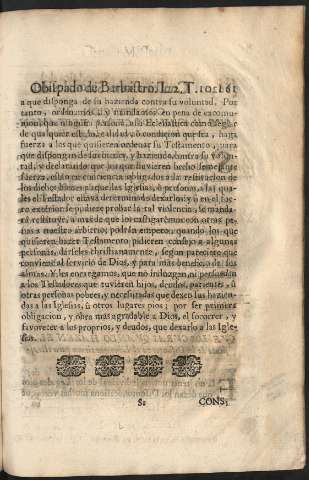 Obispado de Barbastro. Lu2, T. 10.
a que disponga de su hazienda contra su voluntad. Por
tanto, ordenamos, y mandamos en pena de excomu-
nion que ninguna persona, assi Eclesiastica como Seglar
de qualquier estado, calidad, ò condicion que sea, haga
fuerça a los que quisieren ordenar su Testamento, para
que dispongan de sus bienes, y hazienda, contra su volun-
tad, y declarando que los que huvieren hecho semejante
fuerça, estàn en conciencia obligados a la restitucion de
los dichos bienes para que las Iglesias, ò personas, a las qua-
les el Testador estava determinado dexarlos: y si en el fue-
ro exterior se pudiere probar la tal violencia, se manda-
rà restituyr, a mas de que los castigarèmos con otras pe-
nas a nuestro arbitrio; podràn empero, quando los que
quisieren hazer Testamento pidieren consejo a algunas
personas, darseles christianamente, segun pareciere que
conviene al servicio de Dios, y para mas beneficio de sus
almas. Y les encargamos, que no induzgan, ni persuadan
a los Testadores que tuvieren hijos, deudos, parientes, ù
otras personas pobres, y necessitadas que dexen sus hazien-
das a las Iglesias, ù otros lugares pios; por ser primera
obligacion, y obra mas agradable a Dios, el socorrer, y
favorecer a los proprios, y deudos, que dexarlo a las Igle-
sias.
S2
CONS: